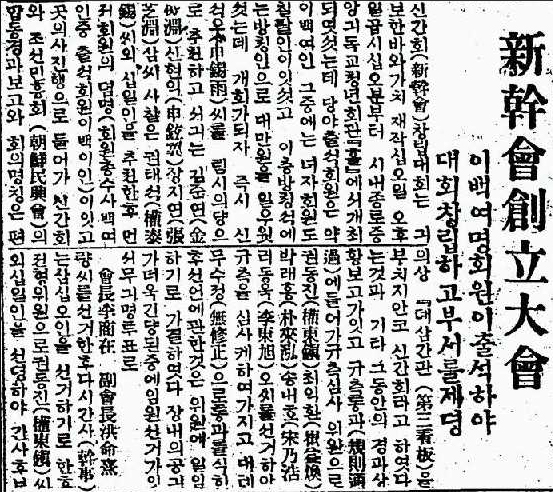 新幹會創立大會
이백여명회원이출석하야
대회창립하고부서를제뎡
신간회(新幹會) 창립대회는 긔
보한바와가치 재작십오일 오후
일곱시십오분부터 시내종로중
앙긔독교청년회관『홀』에서개최
되엿섯는데 당야출석회원은 약
이백여인 그중에는 녀자회원도
칠팔인이잇섯고 이층방텽석에
는방텽인으로 대만원을 일우웟
섯는데 개회가되자 즉시 신
석우(申錫雨)씨를 림시의댱으
로 추천하고 서긔는 김준연(金
俊淵) 신현익(申鉉翼) 장지연(張
芝淵)삼씨 사찰은 권태석(權泰
錫)씨외 십일인을 추천한후 먼
저회원의 뎜명(회원총수사백여
인중 출석회원이백인)이잇고
곳의사진행으로 들어가 신간회
와 조선민흥회(朝鮮民興會)의
합동경과보고와 회의명칭은 편
의상 『대삼간판(第三看板)을
부치지안코 신간회라고 하엿다
는것과 기타 그동안의 경과상
황보고가잇고 규측통과(規則通
過)에들어가규측심사 위원으로
권동진(權東鎭)최익환(崔益煥)
박래홍(朴來弘)송내호(宋乃浩)
리동욱(李東旭)오씨를선거하야
규측을 심사케하여가지고 대톄
무수정(無修正)으로통과를식히
후선언에관한것은 위원에 일임
하기로 가결하엿다 장내의공긔
가더욱긴댱된중에임원선거가잇
서무긔명투표로
會長李商在 副會長洪命熹
량씨를선거한후다시간사(幹事)
는삼십오인을 선거하기로 한후
전형위원으로권동진(權東鎭)씨
외십일인을 선뎡하야 간사후보